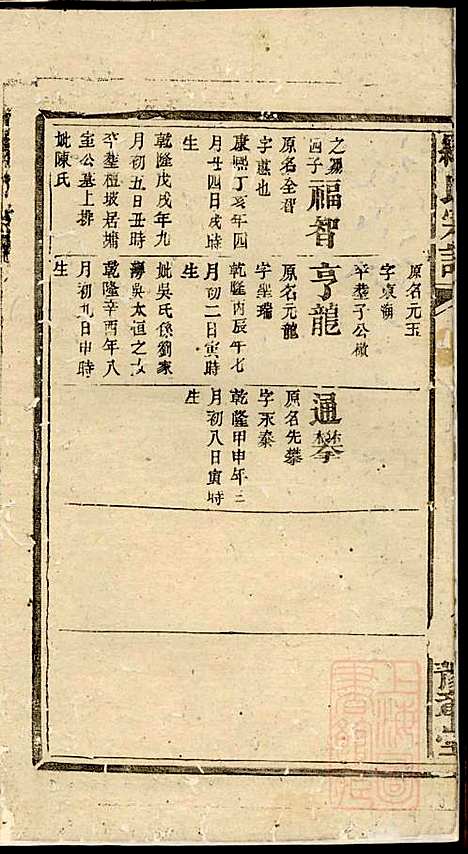 羅氏宗譜
之
四子
福智
原名全智
康熙丁亥年四
月廿四日戌時
生
乾隆戊戌年九
月初五日丑時
卒葬檀坡居塘
室公墓上排
妣陳氏
原名元玉
卒葬子公
亨龍
原名元龍
字瑞
乾隆丙辰年七
月初二日寅時
生
妣吳氏係劉家
吳太恒之女
乾隆辛酉年八
月初九日申時
生
通攀
原名先攀
字永泰
乾隆甲申年三
月初八日寅時
生
豫章堂